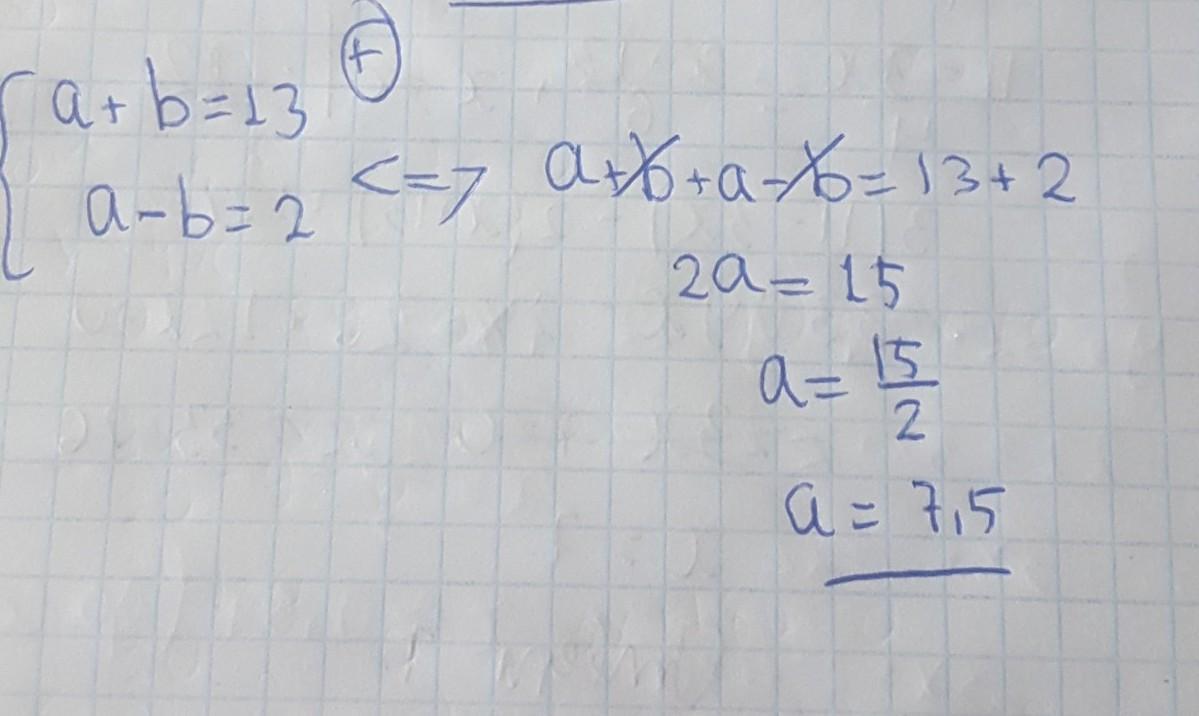 +
a+b=13
a-b=2 <=> a+b+a-b=13+2
2a=15
a=15/2
a=7,5